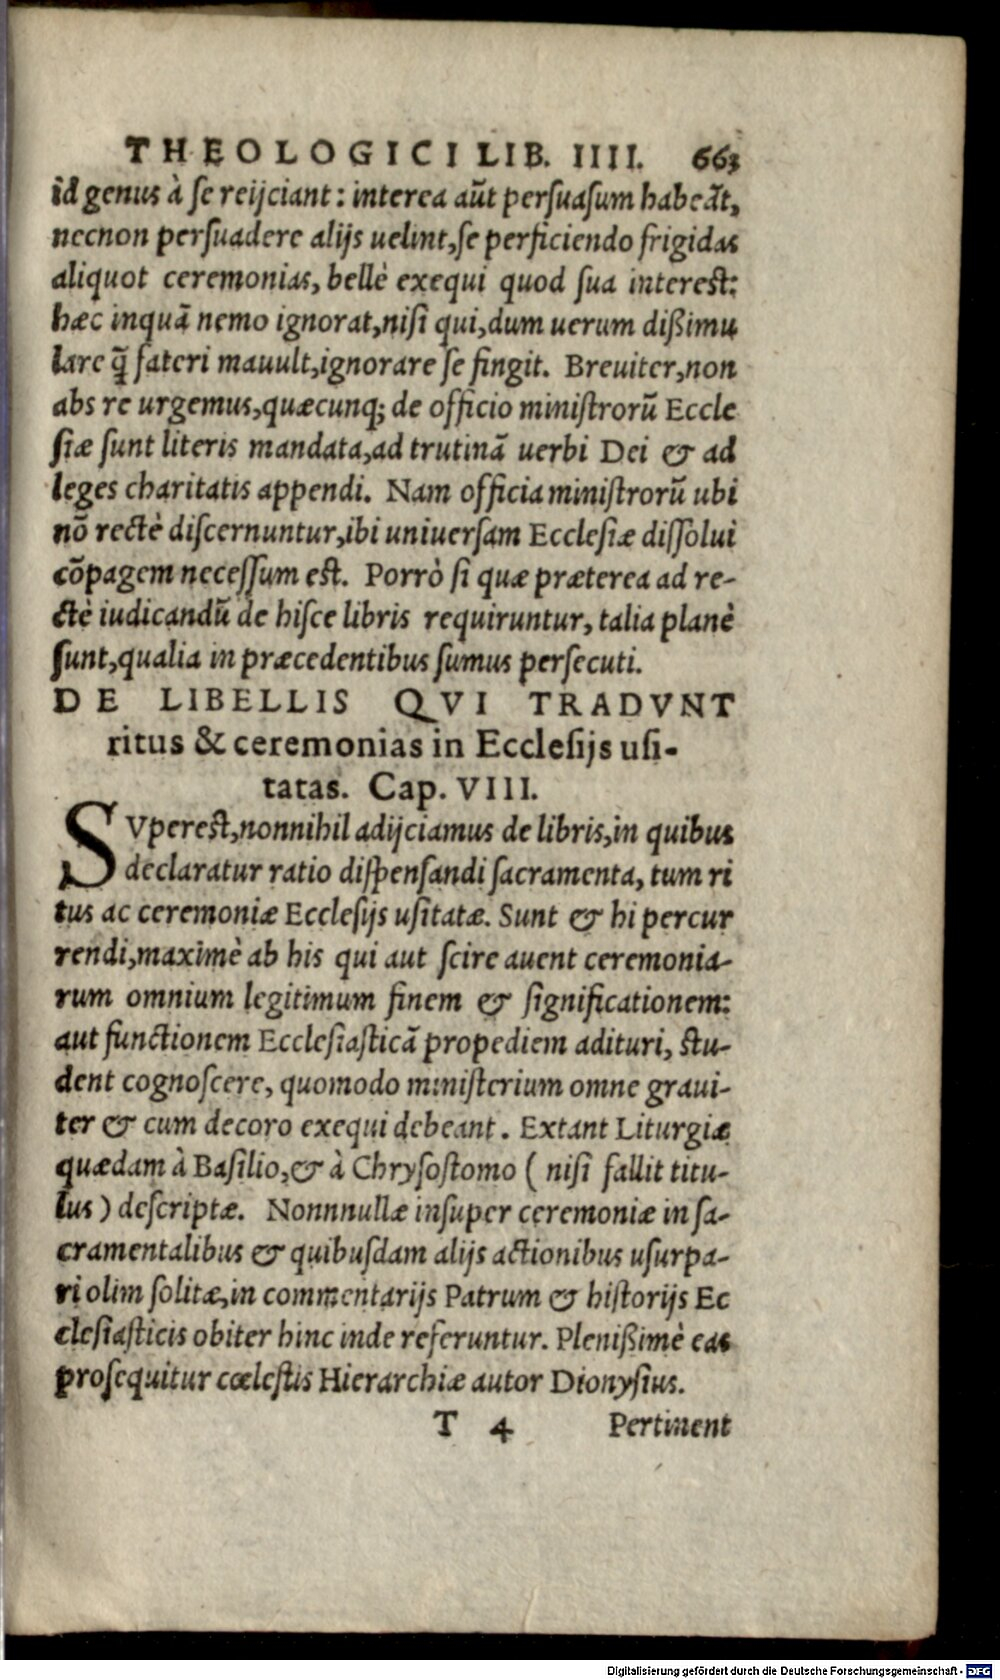 THEOLOGICI LIB. IIII. 663
id genus à se reijciant: interea aũt persuasum habeãt,
necnon persuadere alijs uelint, se perficiendo frigidas
aliquot ceremonias, bellè exequi quod sua interest:
hæc inquã nemo ignorat, nisi qui, dum uerum dißimu
lare q̃ fateri mauult, ignorare se fingit. Breuiter, non
abs re urgemus, quæcunq; de officio ministrorũ Eccle
siæ sunt literis mandata, ad trutinã uerbi Dei & ad
leges charitatis appendi. Nam officia ministrorũ ubi
nõ rectè discernuntur, ibi uniuersam Ecclesiæ dissolui
cõpagem necessum est. Porrò si quæ præterea ad re-
ctè iudicandũ de hisce libris requiruntur, talia planè
sunt, qualia in præcedentibus sumus persecuti.
DE LIBELLIS QVI TRADVNT
ritus & ceremonias in Ecclesijs usi-
tatas. Cap. VIII.
SVperest, nonnihil adijciamus de libris, in quibus
declaratur ratio dispensandi sacramenta, tum ri
tus ac ceremoniæ Ecclesijs usitatæ. Sunt & hi percur
rendi, maximè ab his qui aut scire auent ceremonia-
rum omnium legitimum finem & significationem:
aut functionem Ecclesiasticã propediem adituri, stu-
dent cognoscere, quomodo ministerium omne graui-
ter & cum decoro exequi debeant. Extant Liturgiæ
quædam à Basilio, & à Chrysostomo ( nisi fallit titu-
lus ) descriptæ. Nonnnullæ insuper ceremoniæ in sa-
cramentalibus & quibusdam alijs actionibus usurpa-
ri olim solitæ, in commentarijs Patrum & historijs Ec
clesiasticis obiter hinc inde referuntur. Plenißimè eas
prosequitur cœlestis Hierarchiæ autor Dionysius.
T 4 Pertinent
Digitalisierung gefördert durch die Deutsche Forschungsgemeinschaft - DFG